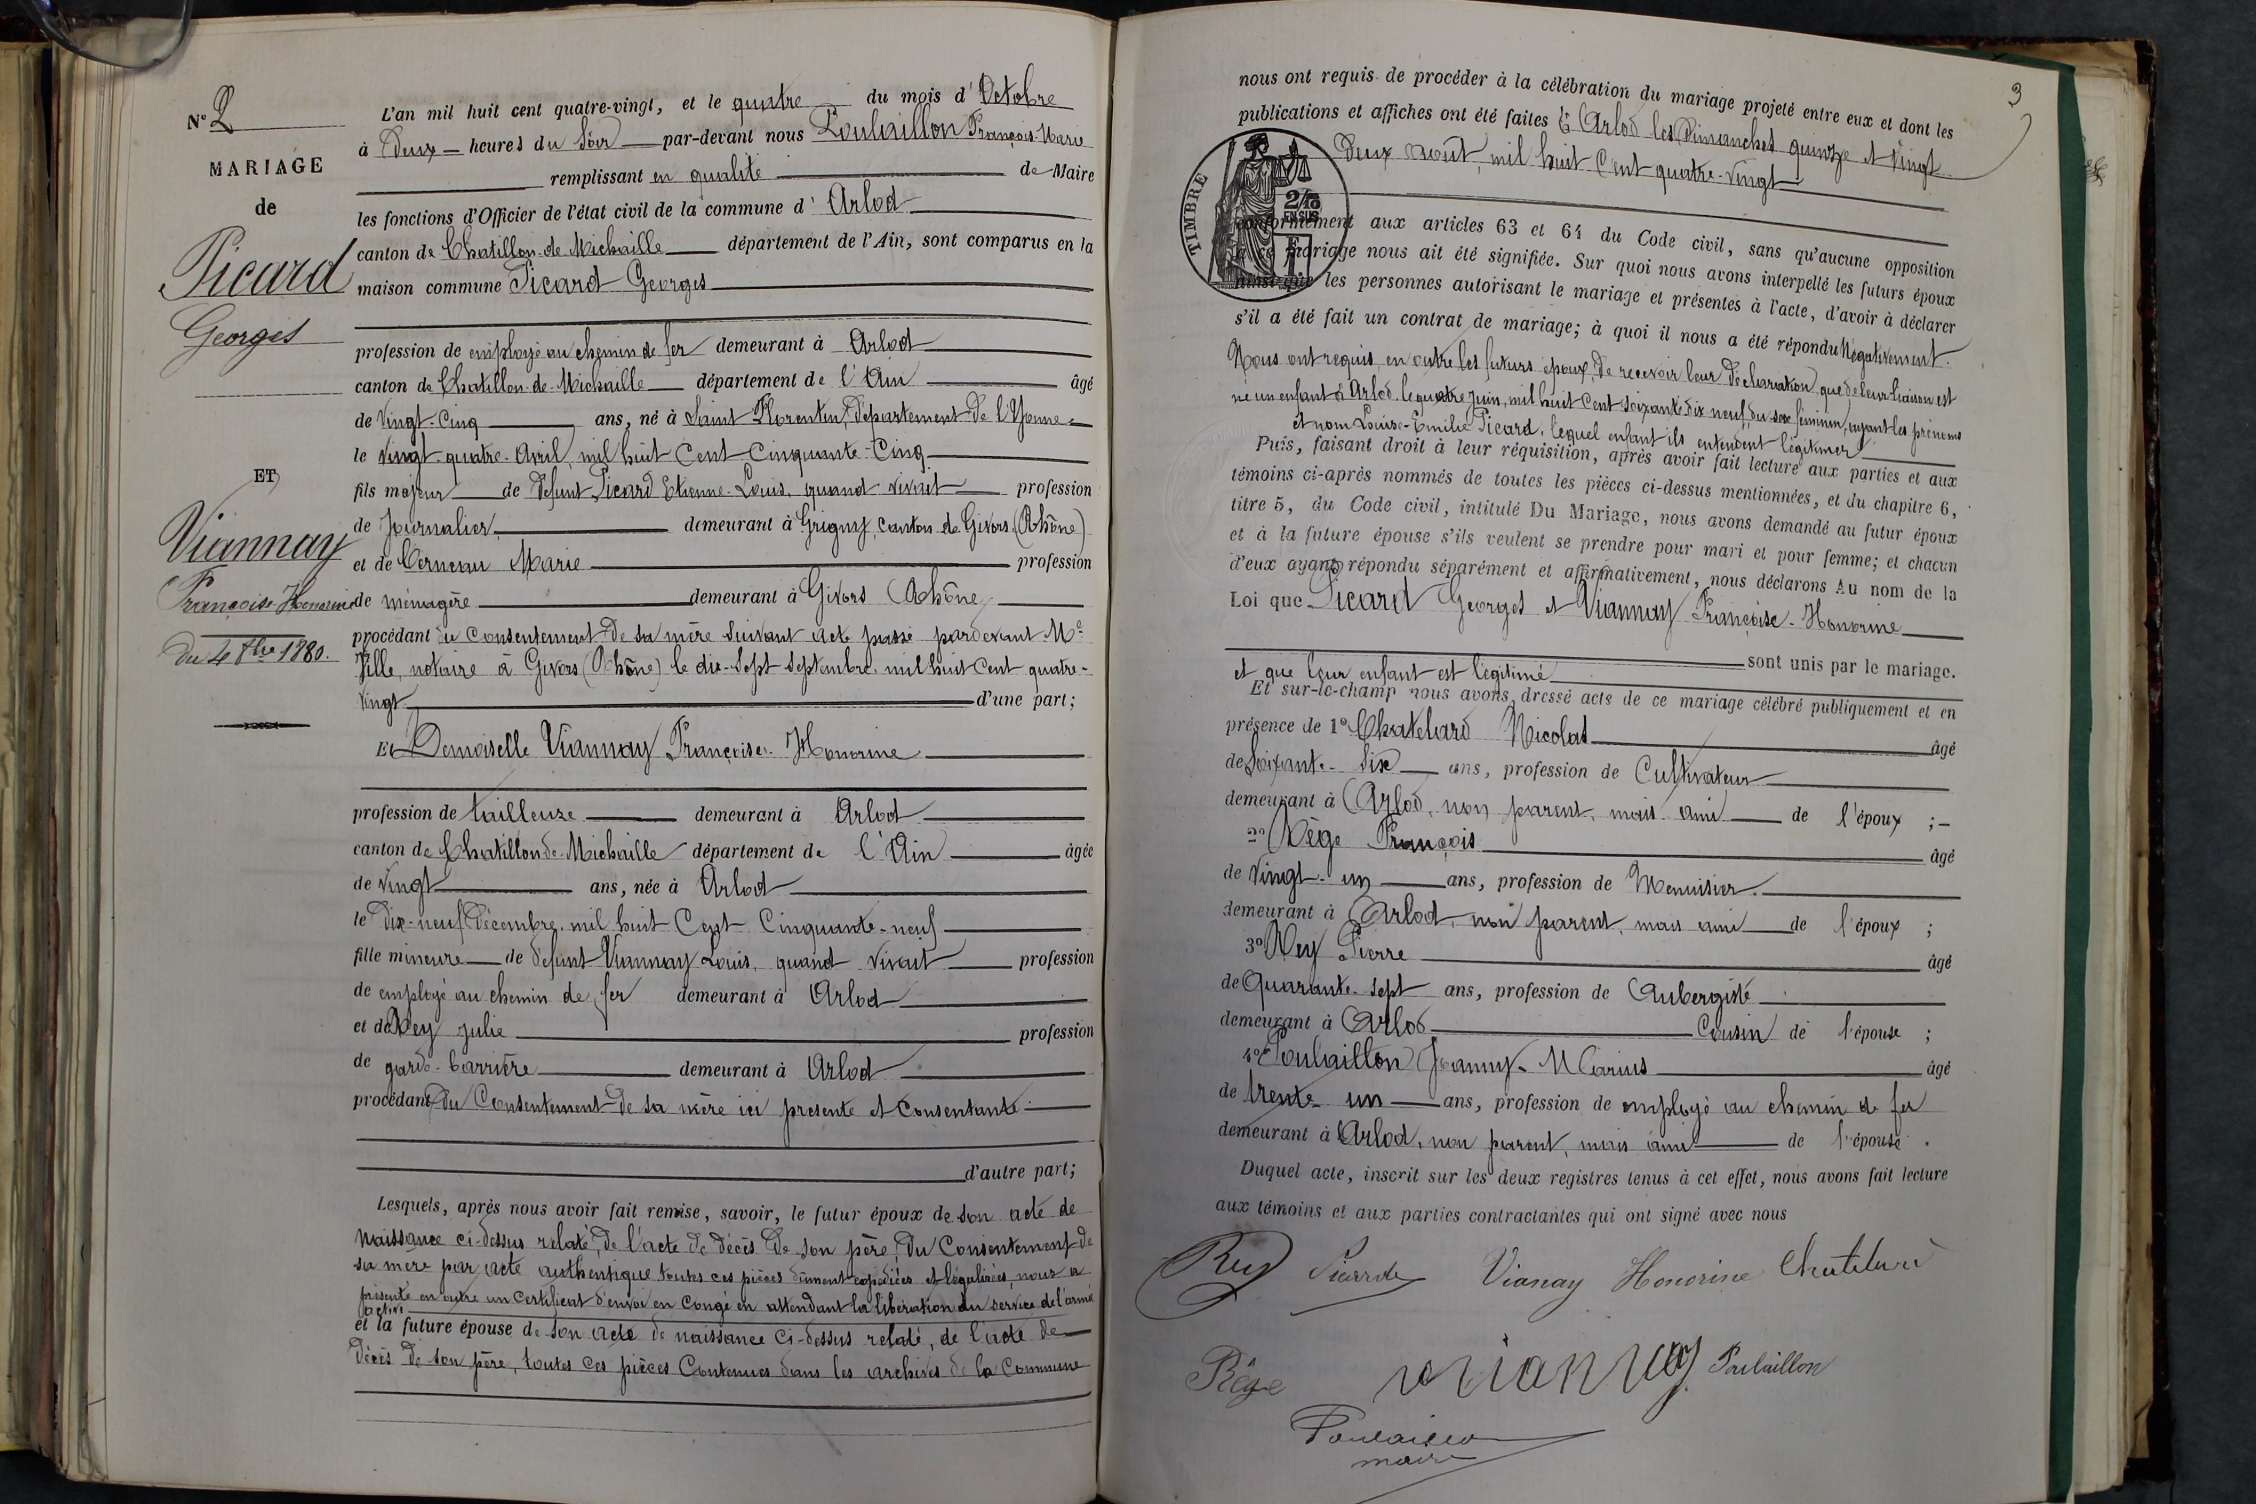 N° 2
MARIAGE
de
Picard
Georges
ET
Viannay
Françoise-Honorine
du 4 8bre 1880.
L'an mil huit cent quatre-vingt, et le quatre du mois d'Octobre
à Deux heures du Soir par-devant nous Poulaillon François-Marie
remplissant en qualité de Maire
les fonctions d'Officier de l'état civil de la commune d'Arlod
canton de Chatillon-de-Michaille département de l'Ain, sont comparus en la
maison commune Picard Georges
profession de employé au chemin de fer demeurant à Arlod
canton de Chatillon-de-Michaille département de l'Ain âgé
de Vingt-Cinq ans, né à Saint Florentin, Département de l'Yonne
le vingt-quatre Avril, mil huit Cent Cinquante-Cinq
fils majeur de Défunt Picard Etienne-Louis, quand vivait profession
de Journalier demeurant à Grigny, canton de Givors (Rhône)
et de Cerneau Marie profession
de ménagère demeurant à Givors (Rhône)
procédant du Consentement de sa mère suivant acte passé pardevant Me
Fille, notaire à Givors (Rhône) le dix-sept septembre mil huit Cent quatre-
vingt d'une part;
Et Demoiselle Viannay Françoise-Honorine
profession de tailleuse demeurant à Arlod
canton de Chatillon-de-Michaille département de l'Ain âgée
de vingt ans, née à Arlod
le Dix-neuf Décembre mil huit Cent Cinquante-neuf
fille mineure de défunt Viannay Louis, quand vivait profession
de employé au chemin de fer demeurant à Arlod
et de Rey Julie profession
de garde-barrière demeurant à Arlod
procédant Du Consentement de sa mère ici présente et Consentante
d'autre part;
Lesquels, après nous avoir fait remise, savoir, le futur époux de son acte de
Naissance ci-dessus relaté, de l'acte de décès de son père, Du Consentement de
sa mère par acte authentique toutes ces pièces dûment expédiées et légalisées, nous a
présenté en outre un Certificat d'envoi en Congé en attendant la libération du service de l'armée
active
et la future épouse de son acte de naissance ci-dessus relaté, de l'acte de
décès de son père, toutes ces pièces Contenues dans les archives de la Commune
3
nous ont requis de procéder à la célébration du mariage projeté entre eux et dont les
publications et affiches ont été faites à Arlod les Dimanches quinze et Vingt
Deux août, mil huit Cent quatre-vingt
TIMBRE
2/10
EN SUS
conformément aux articles 63 et 64 du Code civil, sans qu'aucune opposition
à ce mariage nous ait été signifiée. Sur quoi nous avons interpellé les futurs époux
ainsi que les personnes autorisant le mariage et présentes à l'acte, d'avoir à déclarer
s'il a été fait un contrat de mariage; à quoi il nous a été répondu Négativement.
Nous ont requis en outre les futurs époux, de recevoir leur Déclaration que de leur liaison est
né un enfant à Arlod le quatre juin, mil huit Cent Soixante dix neuf, du sexe féminin, ayant les prénoms
et nom Louise-Emilie Picard, lequel enfant ils entendent légitimer
Puis, faisant droit à leur réquisition, après avoir fait lecture aux parties et aux
témoins ci-après nommés de toutes les pièces ci-dessus mentionnées, et du chapitre 6,
titre 5, du Code civil, intitulé Du Mariage, nous avons demandé au futur époux
et à la future épouse s'ils veulent se prendre pour mari et pour femme; et chacun
d'eux ayant répondu séparément et affirmativement, nous déclarons Au nom de la
Loi que Picard Georges et Viannay Françoise-Honorine
sont unis par le mariage.
et que leur enfant est légitimé
Et sur-le-champ nous avons dressé acte de ce mariage célébré publiquement et en
présence de 1° Chatelard Nicolas âgé
de Soixante-Six ans, profession de Cultivateur
demeurant à Arlod, non parent, mais ami de l'époux ;
2° Rège François âgé
de Vingt-un ans, profession de Menuisier
demeurant à Arlod, non parent, mais ami de l'époux ;
3° Rey Pierre âgé
de Quarante-sept ans, profession de Aubergiste
demeurant à Arlod Cousin de l'épouse ;
4° Poulaillon Joanny-Marius âgé
de trente-un ans, profession de employé au chemin de fer
demeurant à Arlod, non parent, mais ami de l'épouse .
Duquel acte, inscrit sur les deux registres tenus à cet effet, nous avons fait lecture
aux témoins et aux parties contractantes qui ont signé avec nous
Rey Picard Vianay Honorine Chatelard
Rège viannay Poulaillon
Poulaillon
maire